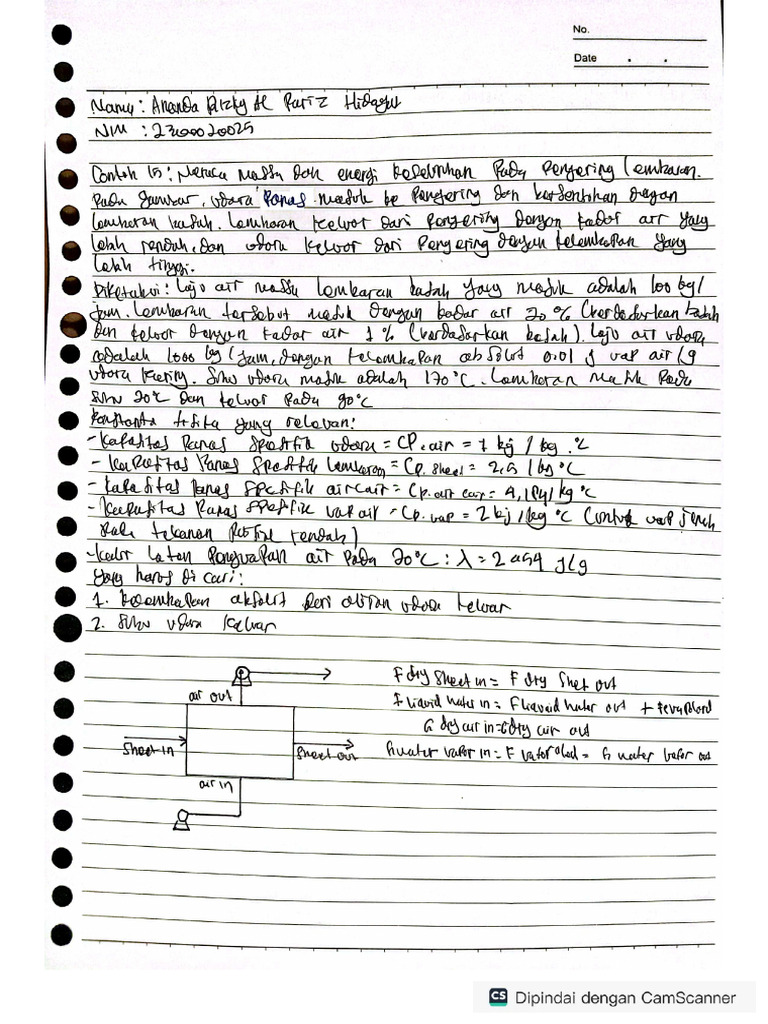 No.
Date . .
Nama : Ananda Rizky Al Fariz Hidayat
NIM : 2300020025
Contoh 15 : Neraca massa dan energi keseluruhan pada pengering lembaran.
Pada gambar, udara panas masuk ke pengering dan bersentuhan dengan
lembaran basah. Lembaran keluar dari pengering dengan kadar air yang
lebih rendah, dan udara keluar dari pengering dengan kelembapan yang
lebih tinggi.
Diketahui : Laju air massa lembaran basah yang masuk adalah 100 kg/
jam. Lembaran tersebut masuk dengan kadar air 20 % (berdasarkan basah
dan keluar dengan kadar air 1 % (berdasarkan basah). Laju air udara
adalah 1000 kg/jam, dengan kelembapan absolut 0.01 g vap air/g
udara kering. Suhu udara masuk adalah 170°C. Lembaran masuk pada
suhu 20°C dan keluar pada 90°C
Konstanta fisika yang relevan:
- Kapasitas panas spesifik udara = CP. air = 1 kj / kg .°C
- Kapasitas panas spesifik lembaran = Cp. sheet = 2,5 / kg °C
- kapasitas panas spesifik air cair = Cp. air cair = 4,184/kg °C
- Kapasitas panas spesifik vap air = Cp. vap = 2 kj / kg °C (untuk vap jenuh
pada tekanan parsial rendah)
- kalor laten penguapan air pada 20°C : λ = 2454 J/g
yang harus di cari:
1. kelembapan absolut dari aliran udara keluar
2. Suhu udara keluar
air out
Sheet in
Sheet out
air in
F dry sheet in = F dry Shet out
F liquid water in = F liquid water out +
G dry air in = G dry air out
G water vapor in = F = G water vapor out
CS Dipindai dengan CamScanner